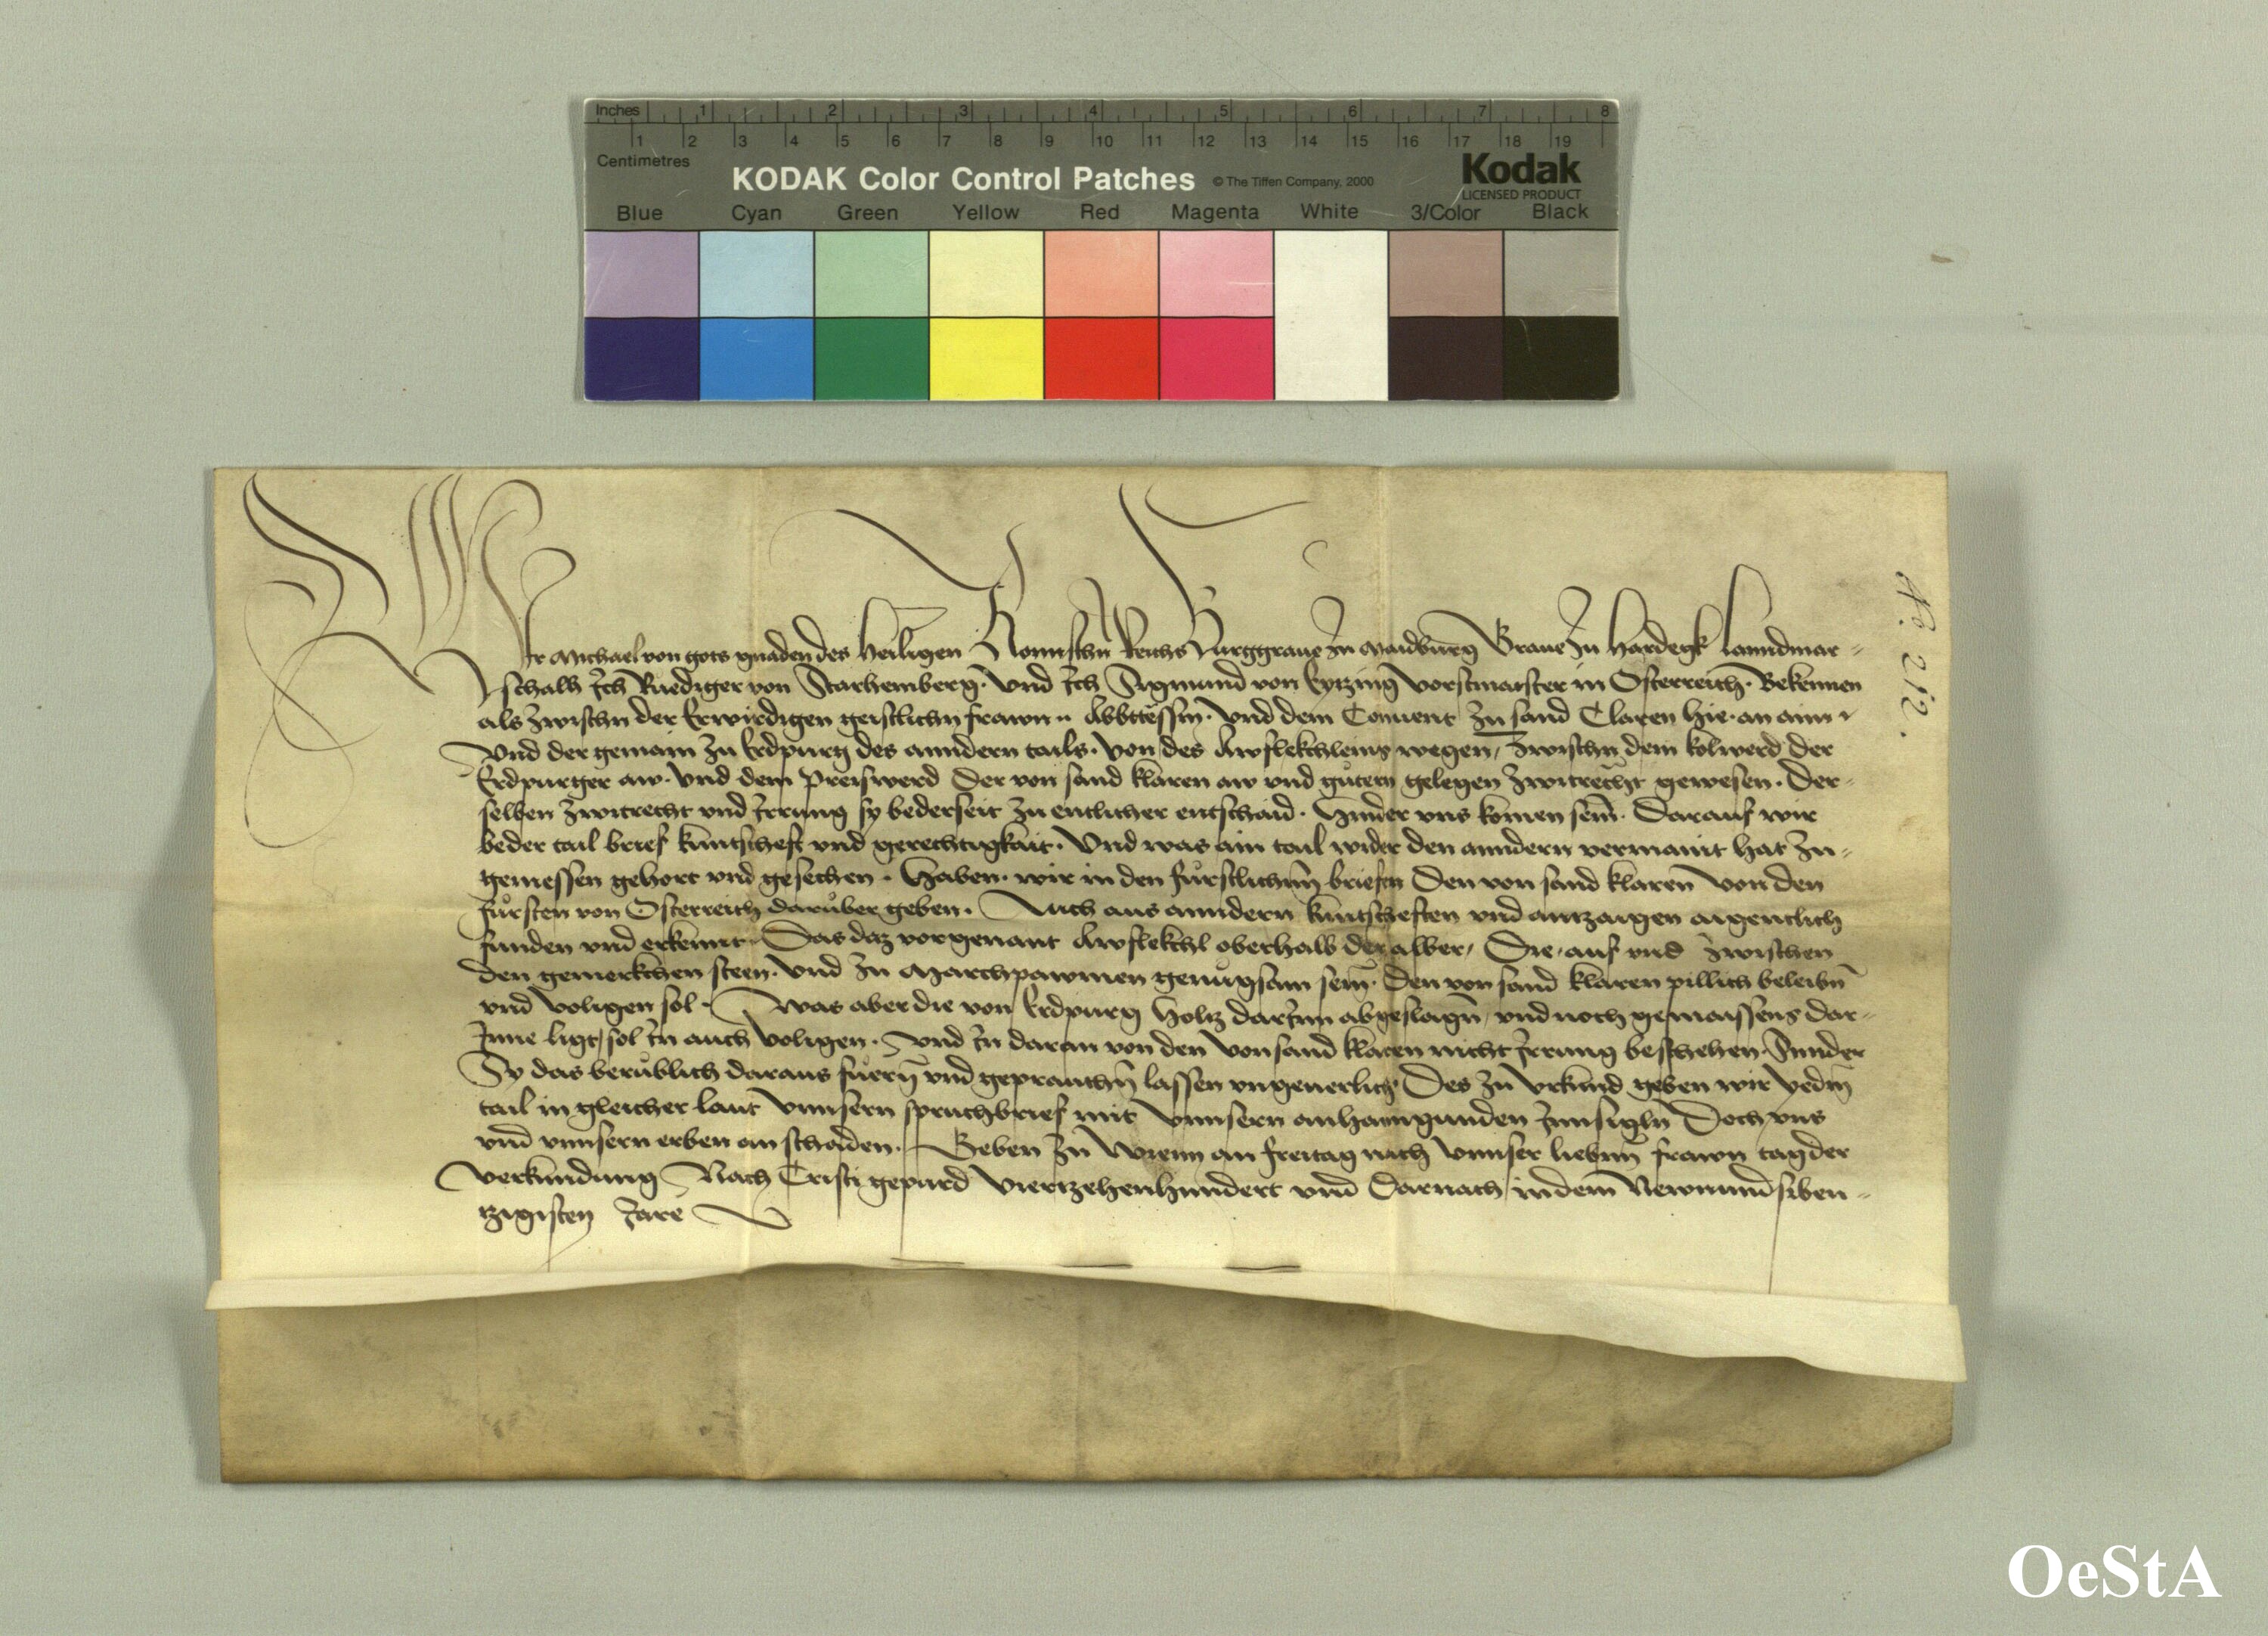 Inches 1 2 3 4 5 6 7 8
1 2 3 4 5 6 7 8 9 10 11 12 13 14 15 16 17 18 19
Centimetres
KODAK Color Control Patches © The Tiffen Company, 2000 Kodak
LICENSED PRODUCT
Blue Cyan Green Yellow Red Magenta White 3/Color Black
Wir Michael von gots gnaden des heiligen Romischn Reichs Burggraue zu Maidburg Graue zu Hardegk lanndmar-
schalh Ich Ruediger von Starhemberg. Vnd Ich Sigmund von Eytzing Vorstmaister in Osterreich. Bekennen
als zwischn der Erwirdigen geistlichn frawn .. Abbttessin. vnd dem Conuent zu sand Claren hie. an aim
Vnd der gemain zu Erdpurg des anndern tails. von des Awflekchleins wegen, zwischn dem kolwerd der
Erdpurger aw. vnd dem Preiswerd der von sand klaren aw vnd guetern gelegen zwitrecht gewesen. Der-
selben zwitrecht vnd Irrung sy bederseit zu entlicher entschaid. hinder vns komen sein. Darauf wir
beder tail brief kuntscheft vnd gerechtigkait. Vnd was ain tail wider den anndern vermaint hat zu-
gemessen gehort vnd gesechen. Haben. wir in den fürstlichnn briefen den von sand klaren von den
fürsten von Osterreich darüber geben. Auch aus anndern kuntscheften vnd antzaigen aigentlich
funden vnd erkennt. Das daz vorgenant Awflekchl oberhalb der alber, Die. auf vnd zwischen
den gemerkchen steen. vnd zu Marchpawmen genůgsam sein. den von sand klaren pillich beleibn
vnd volligen sol. Was aber die von Erdpurg holtz darInn abgeslagn, vnd noch gemaissens dar-
Inne ligt, sol In auch volligen. Vnd In daran von den von sand klaren nicht Irrung beschehen. Sunder
Sy das berůblich daraus fuern vnd geprauchn lassen vngeuerlich. Des zu vrkund geben wir yedm
tail in gleicher laut vnnsern spruchbrief mit vnnsern anhanngunden Innsigln Doch vns
vnd vnnsern erben an schaden. Geben zu Wienn an freitag nach vnnser liebnn frawn tag der
verkundung Nach Cristi gepurd Viertzehenhundert vnd darnach indem Newnundsiben-
tzigisten Jare
No. 212.
OeStA